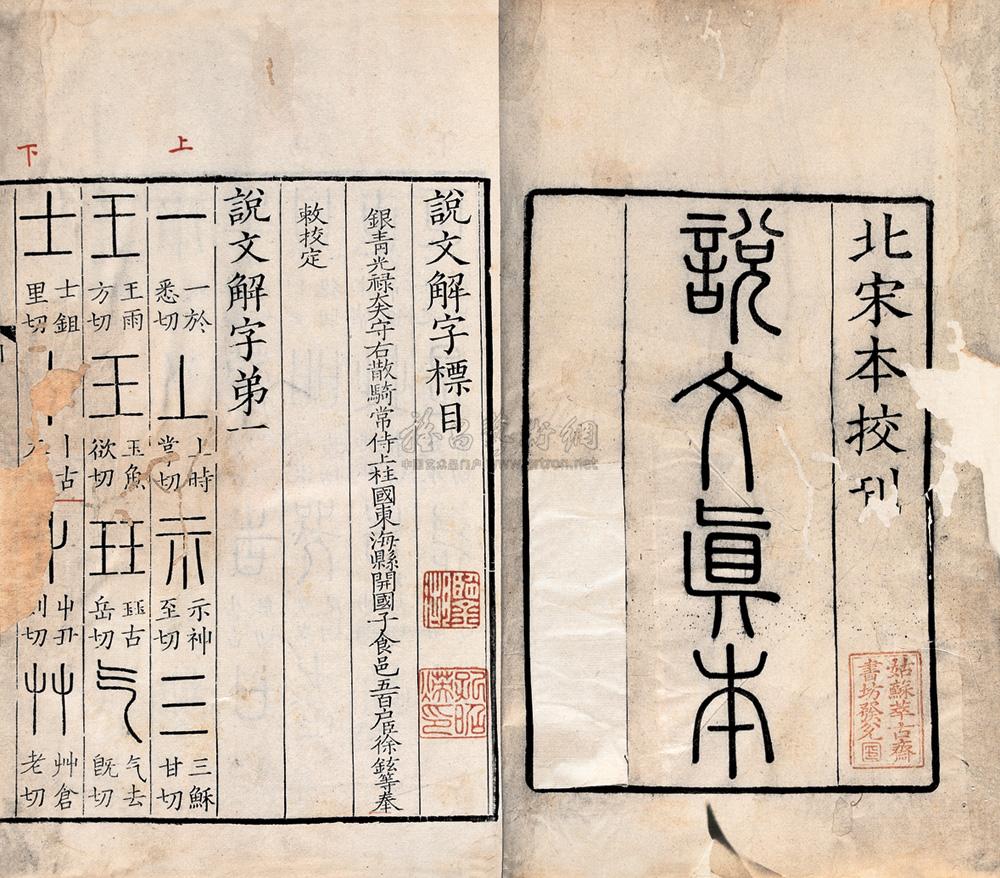 北宋本校刊
說文眞本
姑蘇萃古齋
書坊發兌
說文解字標目
銀青光祿大夫守右散騎常侍上柱國東海縣開國子食邑五百戶臣徐鉉等奉
敕挍定
說文解字弟一
上
一 一於悉切 丄 上時掌切 示 示神至切 三 三穌甘切
王 王雨方切 王 玉魚欲切 玨 玨古岳切 气 气去旣切
下
士 士鉏里切 丨 丨古 屮 屮丑 切 艸 艸倉老切
www.artron.net